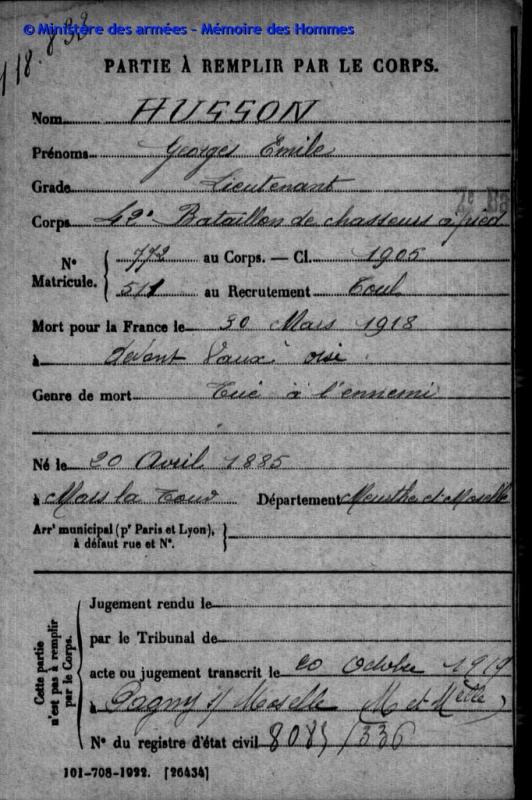 © Ministère des armées - Mémoire des Hommes
118.832
PARTIE À REMPLIR PAR LE CORPS.
Nom HUSSON
Prénoms Georges Emile
Grade Lieutenant
Corps 42e Bataillon de chasseurs à pied
N° Matricule. { 772 au Corps. — Cl. 1905
511 au Recrutement Toul
Mort pour la France le 30 Mars 1918
à devant Vaux oise
Genre de mort Tué à l'ennemi
Né le 20 Avril 1885
à Mars la Tour Département Meurthe et Moselle
Arrt municipal (pr Paris et Lyon), à défaut rue et N°. }
Cette partie n'est pas à remplir par le Corps.
Jugement rendu le
par le Tribunal de
acte ou jugement transcrit le 20 Octobre 1919
à Pagny s/ Moselle M et Mlle)
N° du registre d'état civil 8085/336
101-708-1922. [26434]